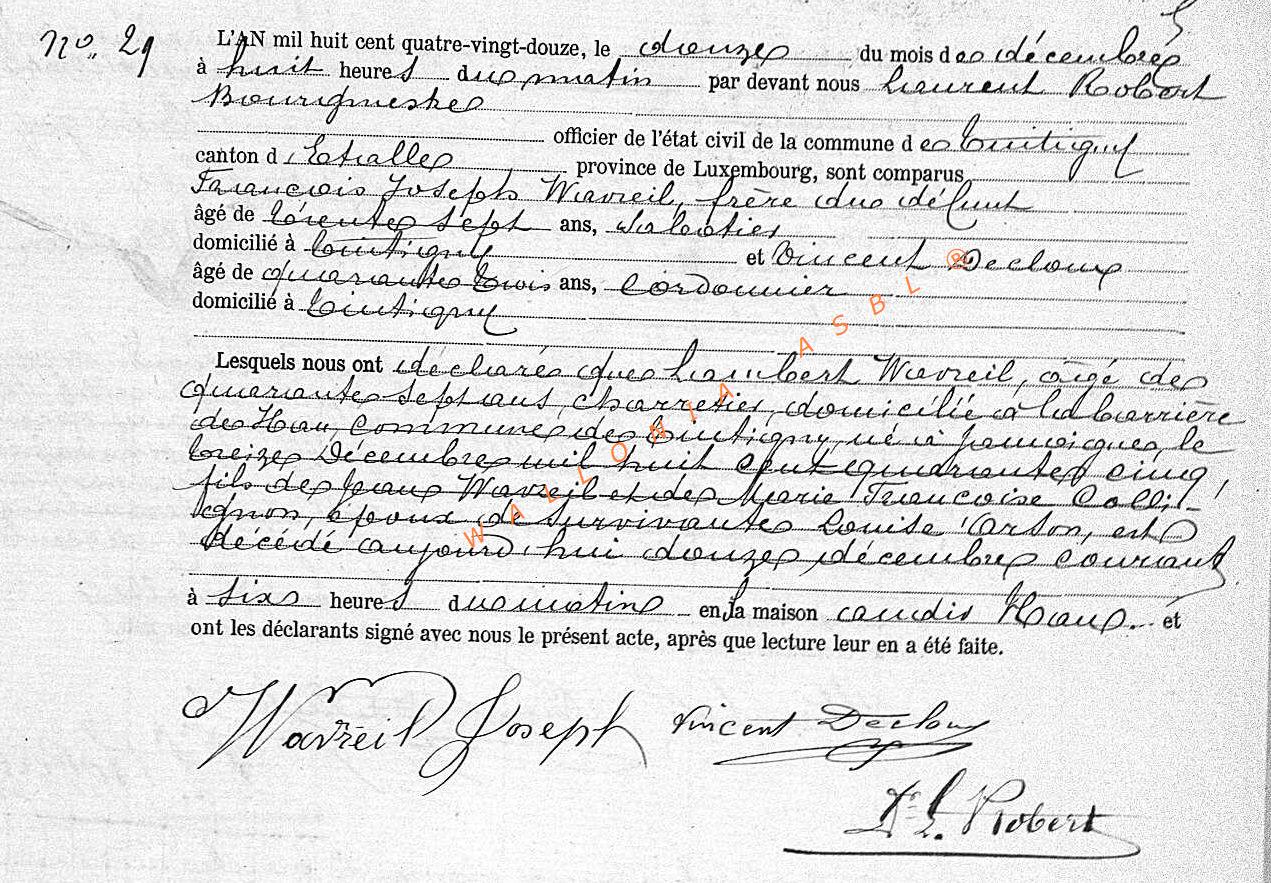 no. 29
L'AN mil huit cent quatre-vingt-douze, le douze du mois de décembre
à huit heures du matin par devant nous Laurent Robert
Bourgmestre
officier de l'état civil de la commune de Tintigny
canton d'Etalle province de Luxembourg, sont comparus
François Joseph Wavreil, frère du défunt
âgé de trente sept ans, sabotier
domicilié à Tintigny et Vincent Decloux
âgé de quarante trois ans, cordonnier
domicilié à Tintigny
Lesquels nous ont déclaré que Lambert Wavreil, âgé de
quarante sept ans, charretier, domicilié à la barrière
de Han, commune de Tintigny, né à Jamoigne, le
treize Décembre mil huit cent quarante cinq,
fils de Jean Wavreil et de Marie Françoise Colli-
gnon, époux de survivante Louise Carton, est
décédé aujourd'hui douze décembre courant
à six heures du matin en la maison audit Han. et
ont les déclarants signé avec nous le présent acte, après que lecture leur en a été faite.
Wavreil Joseph Vincent Decloux
L. Robert
WALLONIA ASBL ®